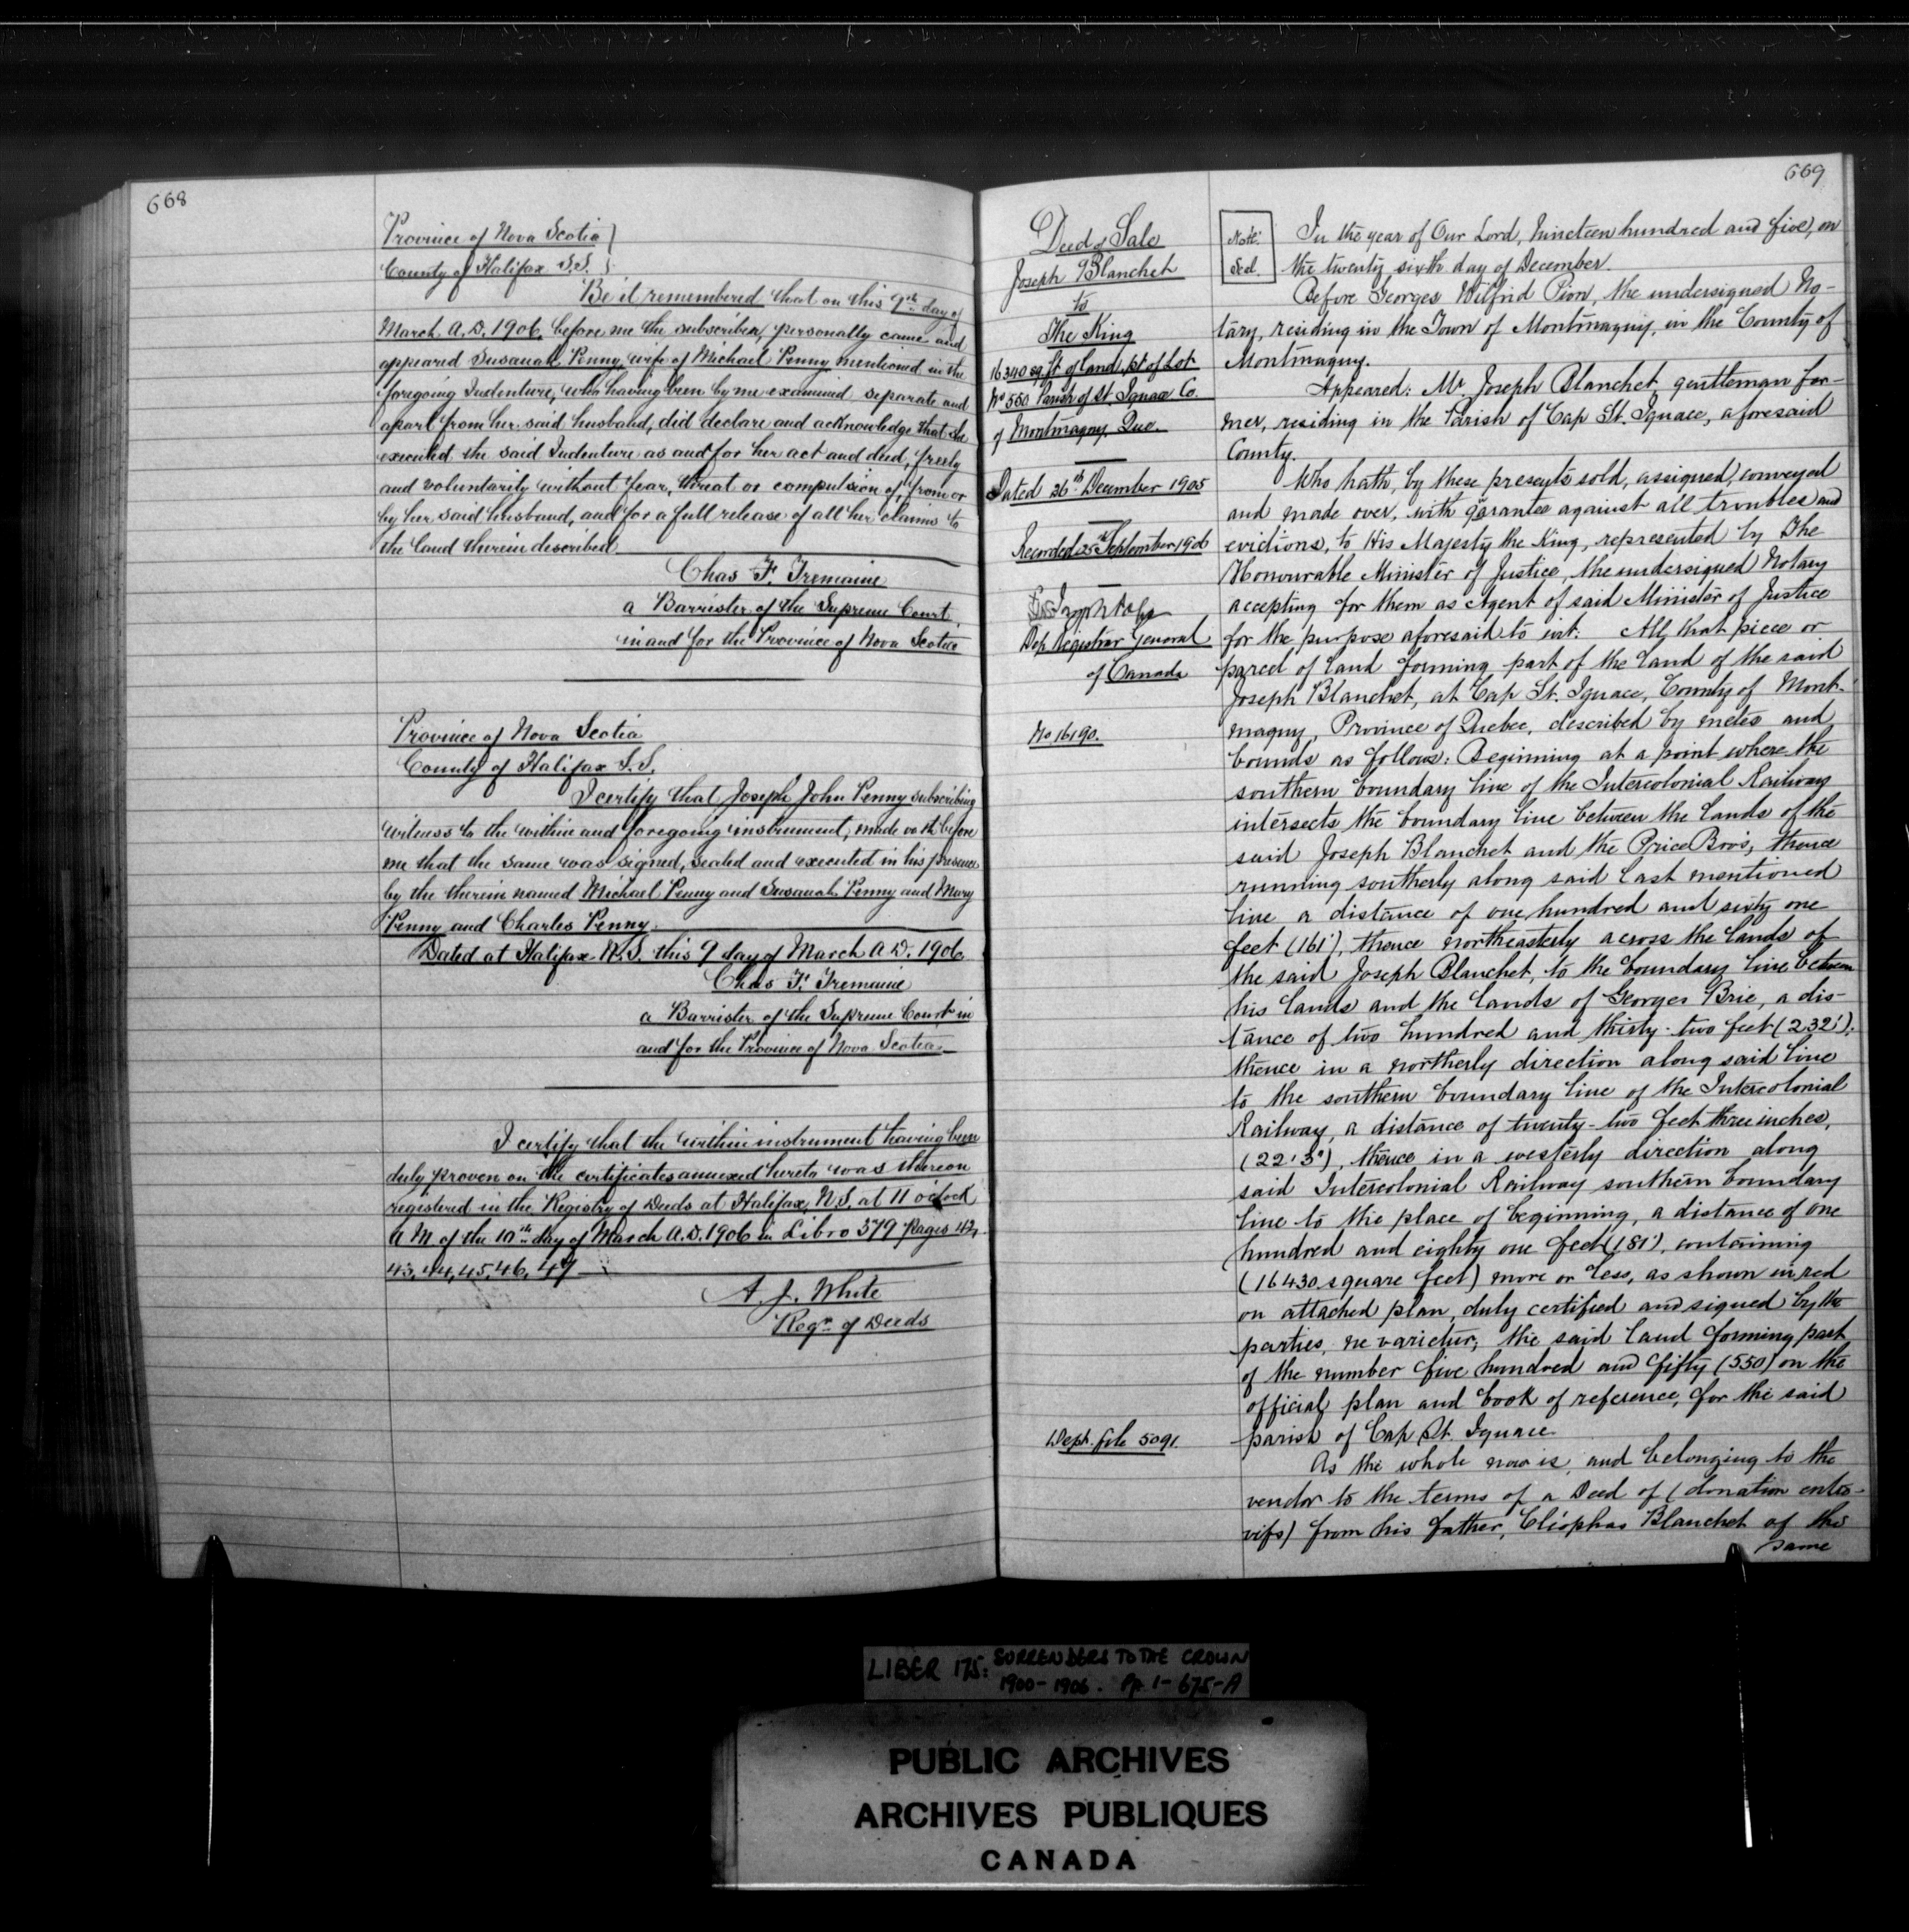 668
Province of Nova Scotia
County of Halifax S.S.
Be it remembered that on this 9th day of
March A.D. 1906, before me the subscriber, personally came and
appeared Susanah Penny wife of Michael Penny mentioned in the
foregoing Indenture, who having been by me examined separate and
apart from her said husband, did declare and acknowledge that she
executed the said Indenture as and for her act and deed, freely
and voluntarily without fear, threat or compulsion of, from or
by her said husband, and for a full release of all her claims to
the land therein described
Chas F. Tremaine
a Barrister of the Supreme Court
in and for the Province of Nova Scotia
Province of Nova Scotia
County of Halifax S.S.
I certify that Joseph John Penny subscribing
witness to the within and foregoing instrument, made oath before
me that the same was signed, sealed and executed in his presence
by the therein named Michael Penny and Susanah Penny and Mary
Penny and Charles Penny.
Dated at Halifax N.S. this 9 day of March A.D. 1906
Chas F. Tremaine
a Barrister of the Supreme Court in
and for the Province of Nova Scotia
I certify that the within instrument having been
duly proven on the certificates annexed hereto was thereon
registered in the Registry of Deeds at Halifax, N.S. at 11 o'clock
A M of the 10th day of March A.D. 1906 in Libro 379 Pages 42,
43, 44, 45, 46, 47
A. J. White
Regr. of Deeds
669
Deed of Sale
Joseph Blanchet
to
The King
16340 sq. ft of land, pt of Lot
No 550 Parish of St. Ignace Co.
of Montmagny, Que.
Dated 26th December 1905
Recorded 25th September 1906
Joseph Pope
Dep. Registrar General
of Canada
No 16190.
Dept. file 5091.
Not.
Seal.
In the year of Our Lord, Nineteen hundred and five, on
the twenty sixth day of December.
Before Georges Wilfrid Pion, the undersigned No-
tary, residing in the Town of Montmagny, in the County of
Montmagny.
Appeared: Mr Joseph Blanchet, gentleman far-
mer, residing in the Parish of Cap St. Ignace, aforesaid
County.
Who hath, by these presents sold, assigned, conveyed
and made over, with garantee against all troubles and
evictions, to His Majesty the King, represented by The
Honourable Minister of Justice, the undersigned Notary
accepting for them as Agent of said Minister of Justice
for the purpose aforesaid to wit: All that piece or
parcel of land forming part of the land of the said
Joseph Blanchet, at Cap St. Ignace, County of Mont-
magny, Province of Quebec, described by metes and
bounds as follows: Beginning at a point where the
southern boundary line of the Intercolonial Railway
intersects the boundary line between the lands of the
said Joseph Blanchet and the Price Bros, thence
running southerly along said last mentioned
line a distance of one hundred and sixty one
feet (161'), thence northeasterly across the lands of
the said Joseph Blanchet, to the boundary line between
his lands and the lands of Georges Brie, a dis-
tance of two hundred and thirty-two feet (232').
thence in a northerly direction along said line
to the southern boundary line of the Intercolonial
Railway, a distance of twenty-two feet three inches,
(22'3"), thence in a westerly direction along
said Intercolonial Railway southern boundary
line to the place of beginning, a distance of one
hundred and eighty one feet (181'), containing
(16430 square feet) more or less, as shown in red
on attached plan, duly certified and signed by the
parties, ne varietur; the said land forming part
of the number five hundred and fifty (550) on the
official plan and book of reference, for the said
parish of Cap St. Ignace
As the whole now is, and belonging to the
vendor to the terms of a Deed of (donation entre-
vifs) from his father, Cléophas Blanchet of the
same
LIBER 175: SURRENDERS TO THE CROWN
1900-1906. Pp. 1-675-A
PUBLIC ARCHIVES
ARCHIVES PUBLIQUES
CANADA